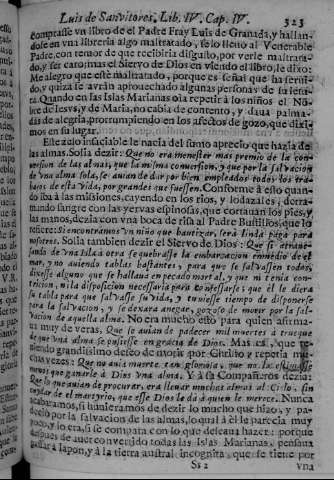 Luis de Sanvitores, Lib. IV. Cap. IV. 323
comprasse vn libro de el Padre Fray Luis de Granada, y hallan-
dose en vna libreria algo maltratado, se lo lleuò al Venerable
Padre, con temor de que recibiria disgusto, por verle maltrata-
do, y ser caro; mas el Siervo de Dios en viendo el libro, le dixo:
Me alegro que estè maltratado, porque es señal que ha servi-
do, y quiza se avràn aprouechado algunas personas de su letu-
ra. Quando en las Islas Marianas oìa repetir à los niños el No-
bre de Iesvs, y de Maria, no cabia de contento, y daua palma-
das de alegria, prorrumpiendo en los afectos de gozo, que dixi-
mos en su lugar.
Este zelo insaciable le nacia del sumo aprecio que hazia de
las almas. Solia dezir: Que no era menester mas premio de la con-
version de las almas, que la misma conversion, y que por la salvacion
de vna alma sola, se auian de dar por bien empleados todos los tra-
bajos de esta vida, por grandes que fuessen. Conforme à esto quan-
do iba à las missiones, cayendo en los rios, y lodazales, derra-
mando sangre con las yervas espinosas, que cortauan los pies, y
las manos, dezia con vna boca de risa al Padre Bustillos, que lo
refiere: Si encontramos vn niño que bautizar, serà linda paga para
nosotros. Solia tambien dezir el Siervo de Dios: Que si atraue-
sando de vna Isla à otra se quebrasse la embarcacion enmedio de el
mar, y no auiendo tablas bastantes, para que se salvassen todos,
dixesse alguno que se hallaua en pecado mortal, y que ni tenia con-
tricion, ni la disposicion necessaria para confessarse; que èl le diera
su tabla para que salvasse su vida, y tuuiesse tiempo de disponerse
para la salvacion, y se dexara anegar, gozoso de morir por la sal-
vacion de aquella alma. No era mucho esto para quien afirma-
va muy de veras, Que se auian de padecer mil muertes à trueque
de que vna alma se pusiesse en gracia de Dios. Mas es, que te-
niendo grandissimo deseo de morir por Christo, y repetia mu-
chas vezes: Que no auia muerte tan gloriosa, que no la estimasse
menos que ganarle à Dios vna alma. Y à sus Compañeros dezia:
Que lo que auian de procurar, era llevar muchas almas al Cielo, sin
cuidar de el martyrio, que esse Dios le dà à quien le merece. Nunca
acabaramos, si huuieramos de dezir lo mucho que hizo, y pa-
deciò por la salvacion de las almas, lo qual à èl le parecia muy
poco, y lo era, si se compàra con lo que deseaua hazer; porque
despues de auer convertido todas las Islas Marianas, pensaua
passar à Iapon, y à la tierra austral incognita, que se tiene por
Ss 2 vna